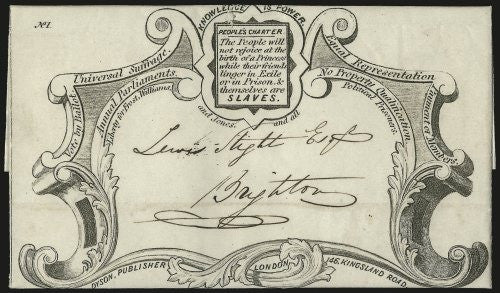 No. 1.
KNOWLEDGE IS POWER
PEOPLE'S CHARTER
The People will
not rejoice at the
birth of a Princess
while their friends
linger in Exile
or in Prison, &
themselves are
SLAVES.
Vote by Ballot.
Universal Suffrage.
Annual Parliaments.
Liberty to Frost, Williams,
and Jones,
and all
Political Prisoners.
No Property Qualification.
Equal Representation
Payment of Members.
Lewis Slight Esqr
Brighton
DYSON, PUBLISHER
LONDON
146, KINGSLAND ROAD.